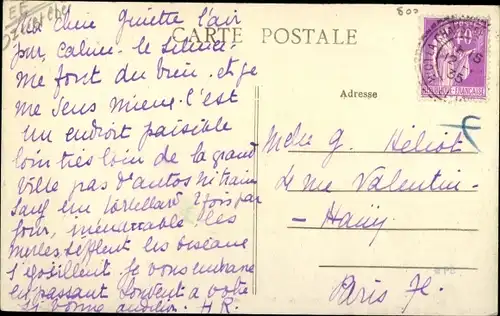 Ma chère Ginette l'air
pur, calme. le silence.
me font du bien. et je
me sens mieux. c'est
un endroit paisible
loin très loin de la grand
ville pas d'autos ni train
sauf un tortillard 2 fois par
jour, inénarrable les
merles sifflent les oiseaux
s'égosillent. Je vous embrasse
en passant souvent à votre
si bonne H.R.
CARTE POSTALE
Adresse
REPUBLIQUE FRANÇAISE
Melle G. Héliot
rue Valentin-
-Haüy
Paris 7e.